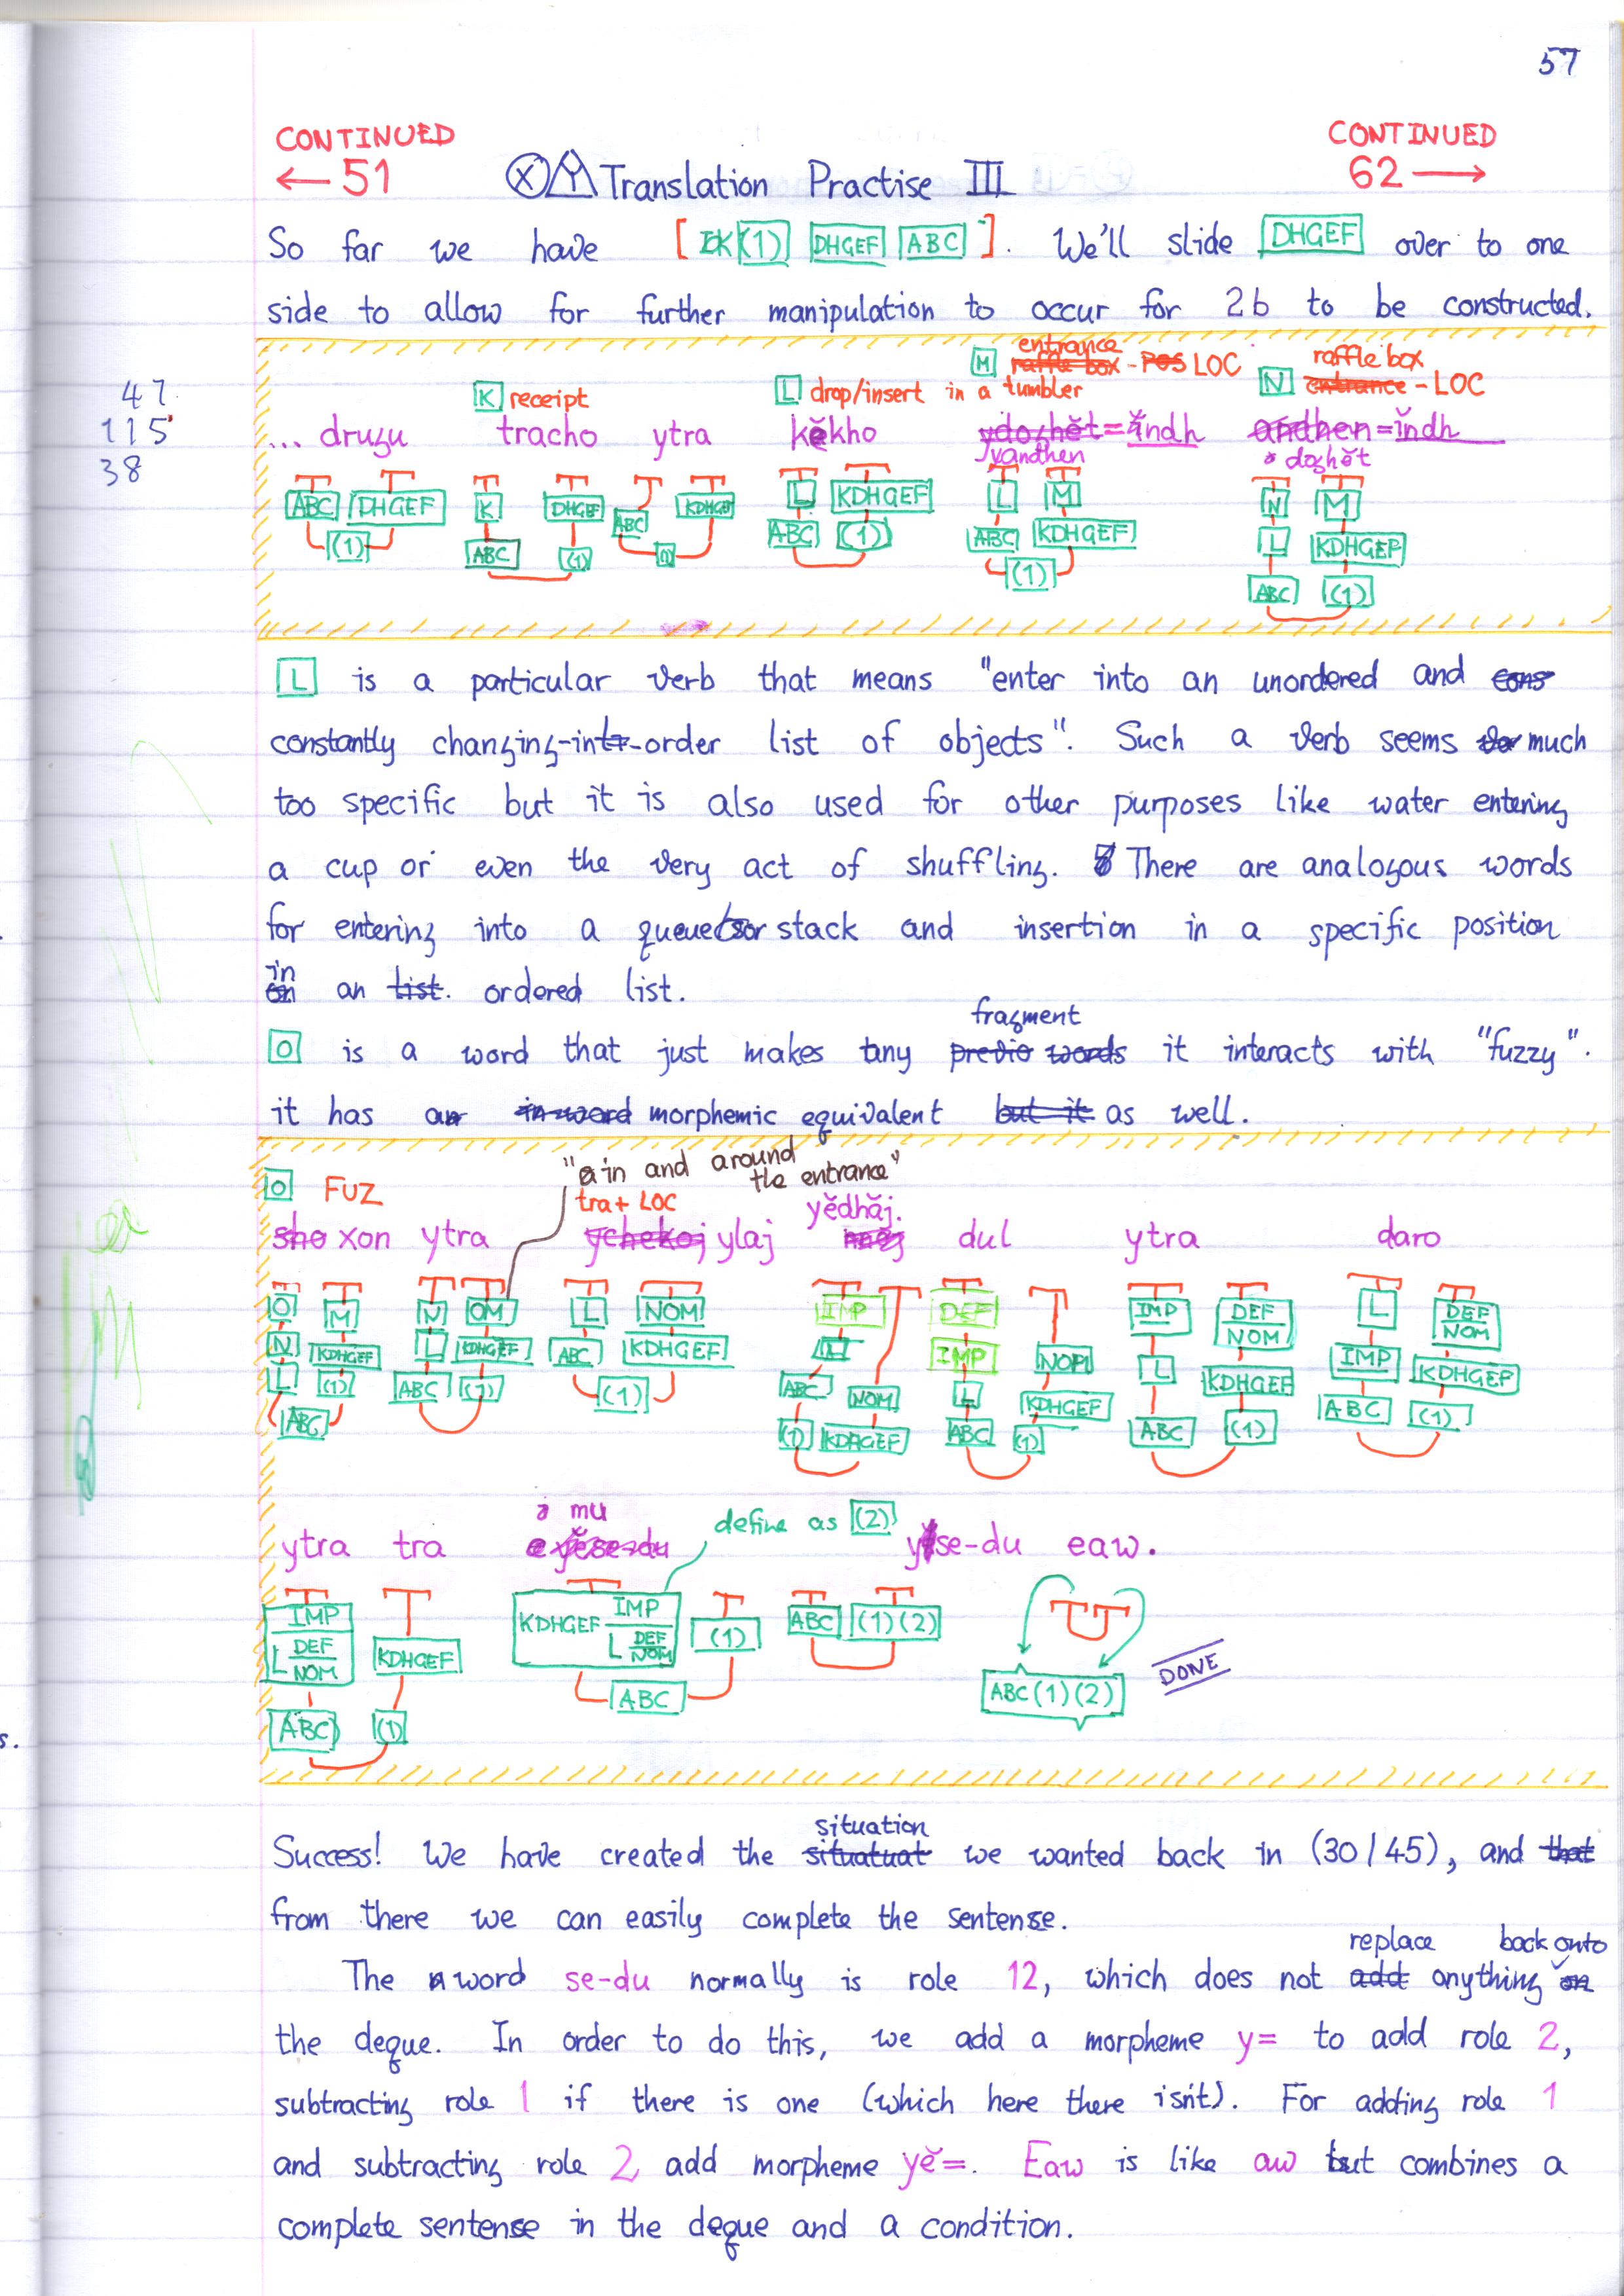 57
CONTINUED
← 51
CONTINUED
62 →
Ⓧ Translation Practise III
So far we have [ (1) DHGEF ABC ]. We'll slide DHGEF over to one
side to allow for further manipulation to occur for 2b to be constructed.
47
115
38
K receipt
L drop/insert in a tumbler
M entrance raffle box - POS LOC
raffle box
N entrance - LOC
... druzu tracho ytra kĕkho ydozhĕt = ĭndh andhen = ĭndh
yandhen
dozhĕt
ABC DHGEF K DHGEF ABC KDHGEF L KDHGEF L M N M
(1) ABC (1) (1) ABC (1) ABC KDHGEF L KDHGEF
(1) ABC (1)
L is a particular verb that means "enter into an unordered and cons
constantly changing-in-order list of objects". Such a verb seems much
too specific but it is also used for other purposes like water entering
a cup or even the very act of shuffling. There are analogous words
for entering into a queue or stack and insertion in a specific position
in
on an list. ordered list.
fragment
O is a word that just makes any previo words it interacts with "fuzzy".
it has an in-word morphemic equivalent but it as well.
"in and around
the entrance"
O FUZ
tra + LOC
yĕdhăj.
sho xon ytra ychekoj ylaj dul ytra daro
O M N OM L NOM IMP DEF IMP DEF L DEF
NOM NOM
N KDHGEF L KDHGEF ABC KDHGEF L IMP NOM L KDHGEF IMP KDHGEF
L (1) ABC (1) (1) ABC NOM L KDHGEF ABC (1) ABC (1)
ABC (1) KDHGEF ABC (1)
mu
define as (2)
ytra tra yĕse-du yse-du eaw.
IMP KDHGEF IMP (1) ABC (1)(2)
L DEF NOM KDHGEF L DEF NOM
ABC (1) ABC ABC(1)(2)
DONE
situation
Success! We have created the situatuat we wanted back in (30/45), and that
from there we can easily complete the sentense.
replace back onto
The word se-du normally is role 12, which does not add anything on
the deque. In order to do this, we add a morpheme y= to add role 2,
subtracting role 1 if there is one (which here there isn't). For adding role 1
and subtracting role 2 add morpheme yĕ=. Eaw is like aw but combines a
complete sentense in the deque and a condition.